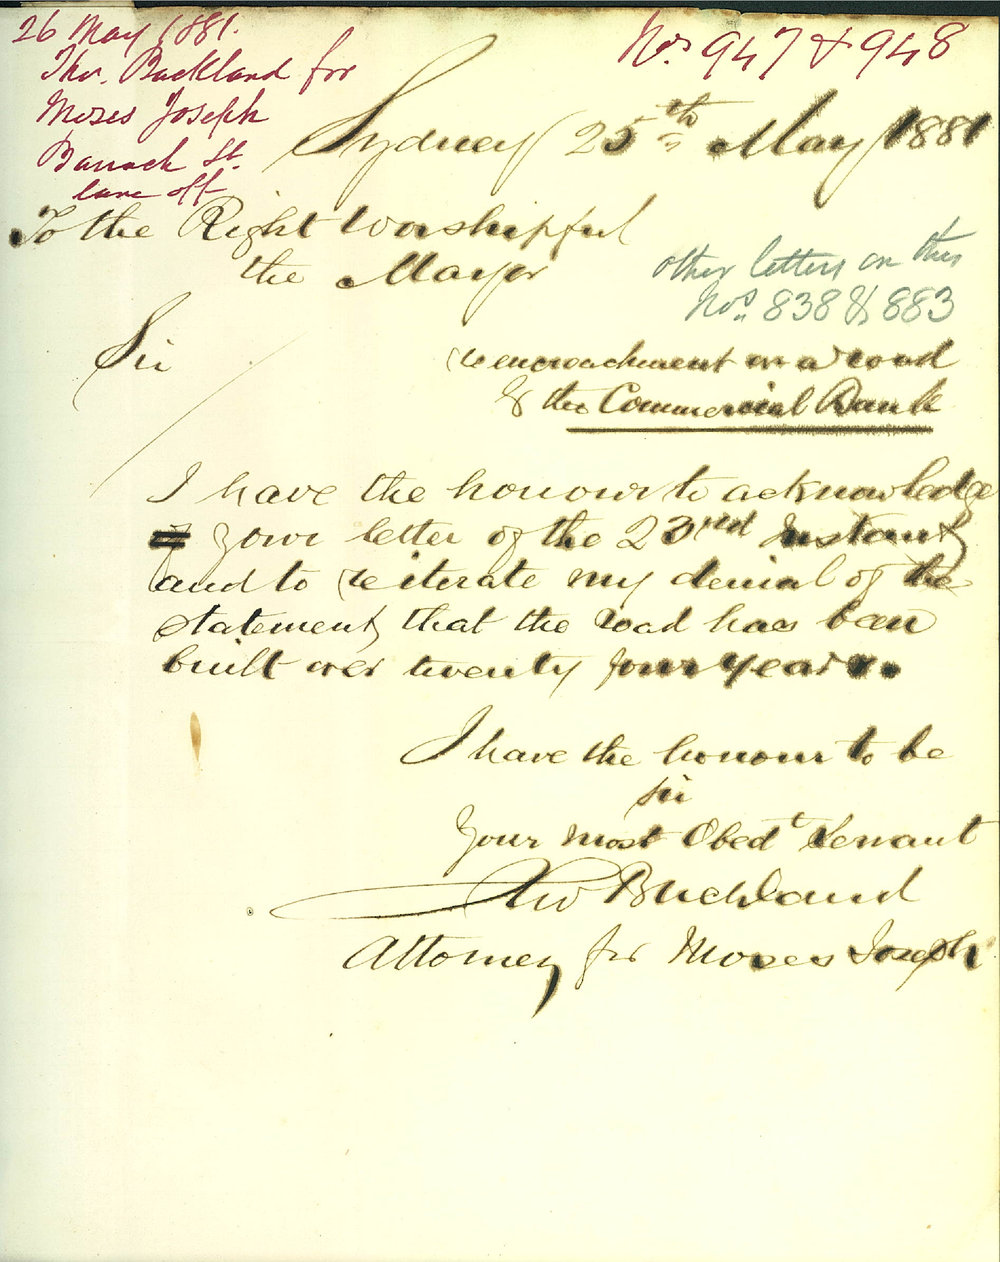 26 May 1881.
Thos. Buckland for
Moses Joseph
Barrack St.
lane off
Nos 947 & 948
Sydney 25th May 1881
To the Right Worshipful
the Mayor
other letters on this
Nos. 838 & 883
Sir
re encroachment on a road
by the Commercial Bank
I have the honour to acknowledge
your letter of the 23rd Instant
and to reiterate my denial of the
statement that the road has been
built over twenty four years.
I have the honour to be
Sir
Your most Obedt Servant
Thos Buckland
Attorney for Moses Joseph